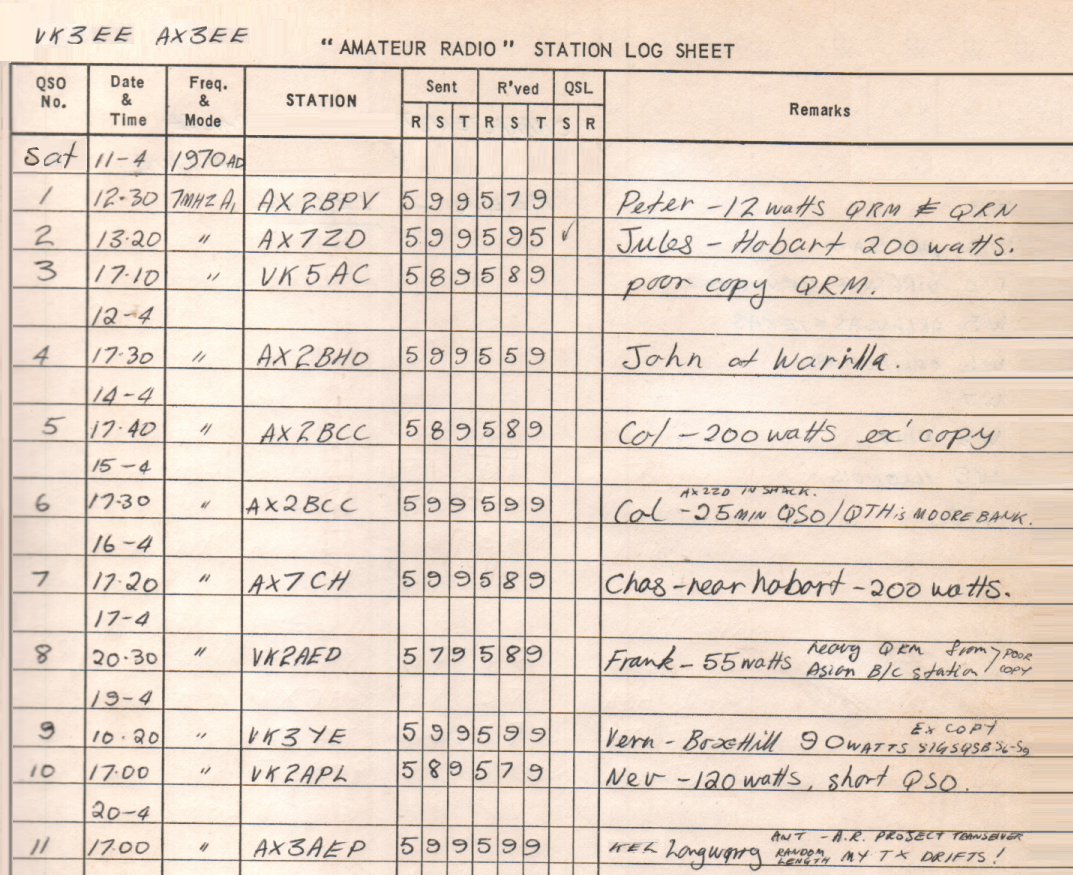 VK3EE AX3EE
"AMATEUR RADIO" STATION LOG SHEET
QSO No. Date & Time Freq. & Mode STATION Sent R'ved QSL Remarks
R S T R S T S R
Sat 11-4 1970 AD
1 12·30 7MHZ A1 AX2BPV 5 9 9 5 7 9 Peter - 12 watts QRM & QRN
2 13·20 " AX7ZD 5 9 9 5 9 5 ✓ Jules - Hobart 200 watts.
3 17·10 " VK5AC 5 8 9 5 8 9 poor copy QRM.
12-4
4 17·30 " AX2BHO 5 9 9 5 5 9 John at Warrilla.
14-4
5 17·40 " AX2BCC 5 8 9 5 8 9 Col - 200 watts ex' copy
15-4
AX2ZD IN SHACK.
6 17·30 " AX2BCC 5 9 9 5 9 9 Col - 25 MIN QSO/QTH is MOORE BANK.
16-4
7 17·20 " AX7CH 5 9 9 5 8 9 Chas - near hobart - 200 watts.
17-4
8 20·30 " VK2AED 5 7 9 5 8 9 Frank - 55 watts heavy QRM from Asian B/C station / POOR COPY
19-4
EX COPY
9 10·20 " VK3YE 5 9 9 5 9 9 Vern - Box Hill 90 WATTS SIGS S6-S9
10 17·00 " VK2APL 5 8 9 5 7 9 Nev - 120 watts, short QSO.
20-4
ANT - A.R. PROJECT TRANSEIVER
11 17·00 " AX3AEP 5 9 9 5 9 9 KEL RANDOM LENGTH MY TX DRIFTS!